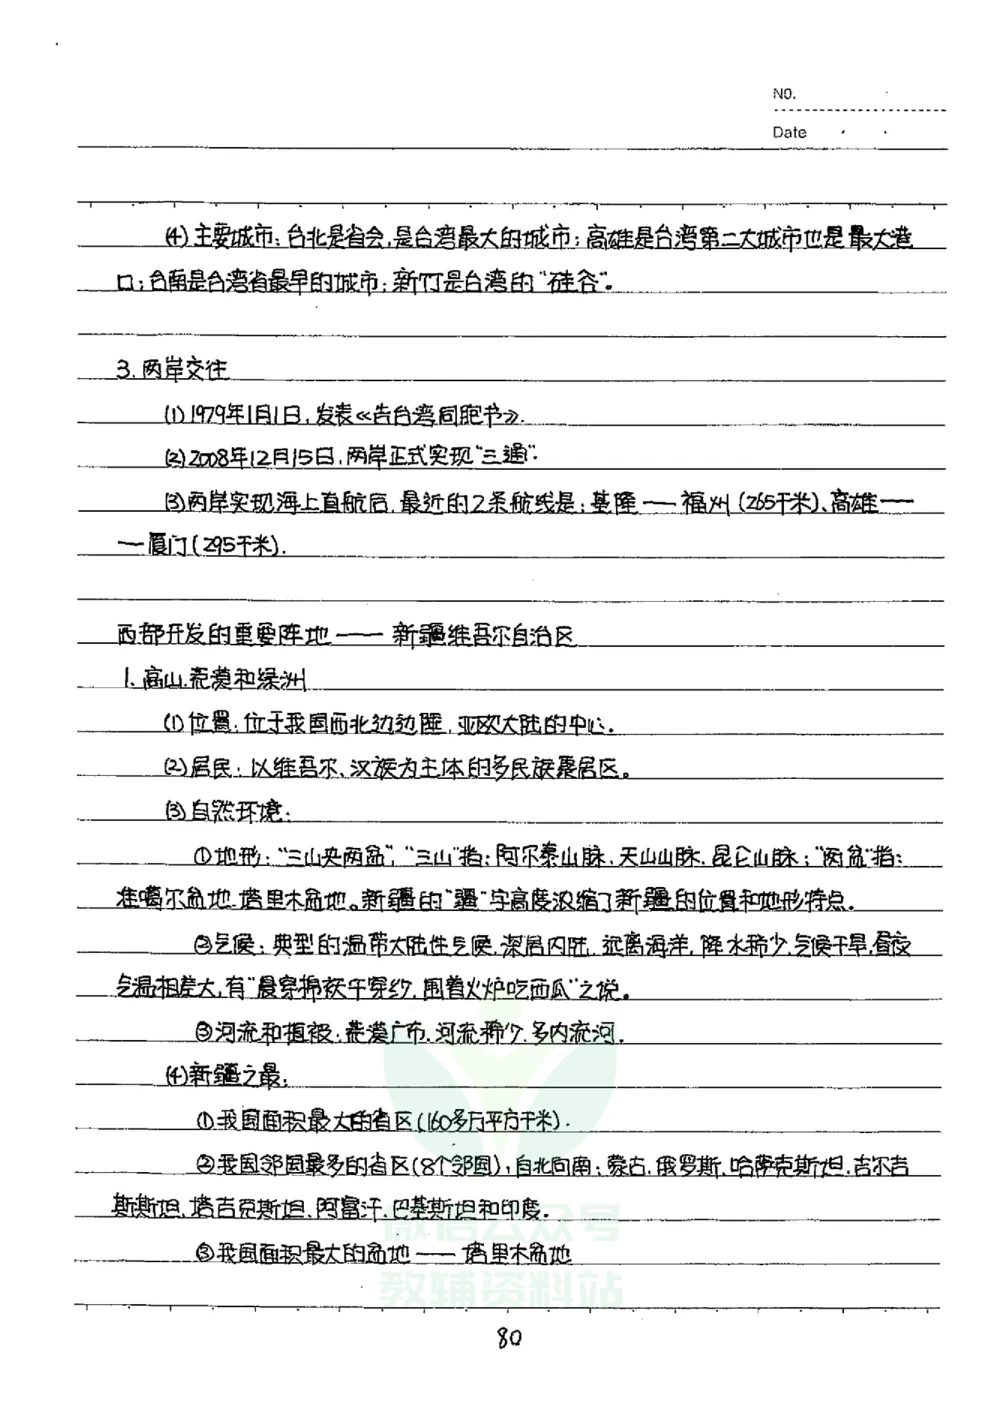 NO.
Date
(4) 主要城市：台北是省会，是台湾最大的城市；高雄是台湾第二大城市也是最大港
口；台南是台湾省最早的城市；新竹是台湾的“硅谷”。
3. 两岸交往
(1) 1979年1月1日，发表《告台湾同胞书》.
(2) 2008年12月15日，两岸正式实现“三通”.
(3) 两岸实现海上直航后，最近的2条航线是：基隆——福州（265千米）、高雄—
—厦门（295千米）.
西部开发的重要阵地——新疆维吾尔自治区
1. 高山、荒漠和绿洲
(1) 位置：位于我国西北边边陲，亚欧大陆的中心.
(2) 居民：以维吾尔、汉族为主体的多民族聚居区。
(3) 自然环境：
①地形：“三山夹两盆”，“三山”指：阿尔泰山脉、天山山脉、昆仑山脉；“两盆”指：
准噶尔盆地、塔里木盆地。新疆的“疆”字高度浓缩了新疆的位置和地形特点.
②气候：典型的温带大陆性气候，深居内陆，远离海洋，降水稀少，气候干旱，昼夜
气温相差大，有“晨穿棉袄午穿纱，围着火炉吃西瓜”之说。
③河流和植被：荒漠广布，河流稀少，多内流河.
(4) 新疆之最：
①我国面积最大的省区（160多万平方千米）.
②我国邻国最多的省区（8个邻国），自北向南：蒙古、俄罗斯、哈萨克斯坦、吉尔吉
斯斯坦、塔吉克斯坦、阿富汗、巴基斯坦和印度.
③我国面积最大的盆地——塔里木盆地
微信公众号
教辅资料站
80